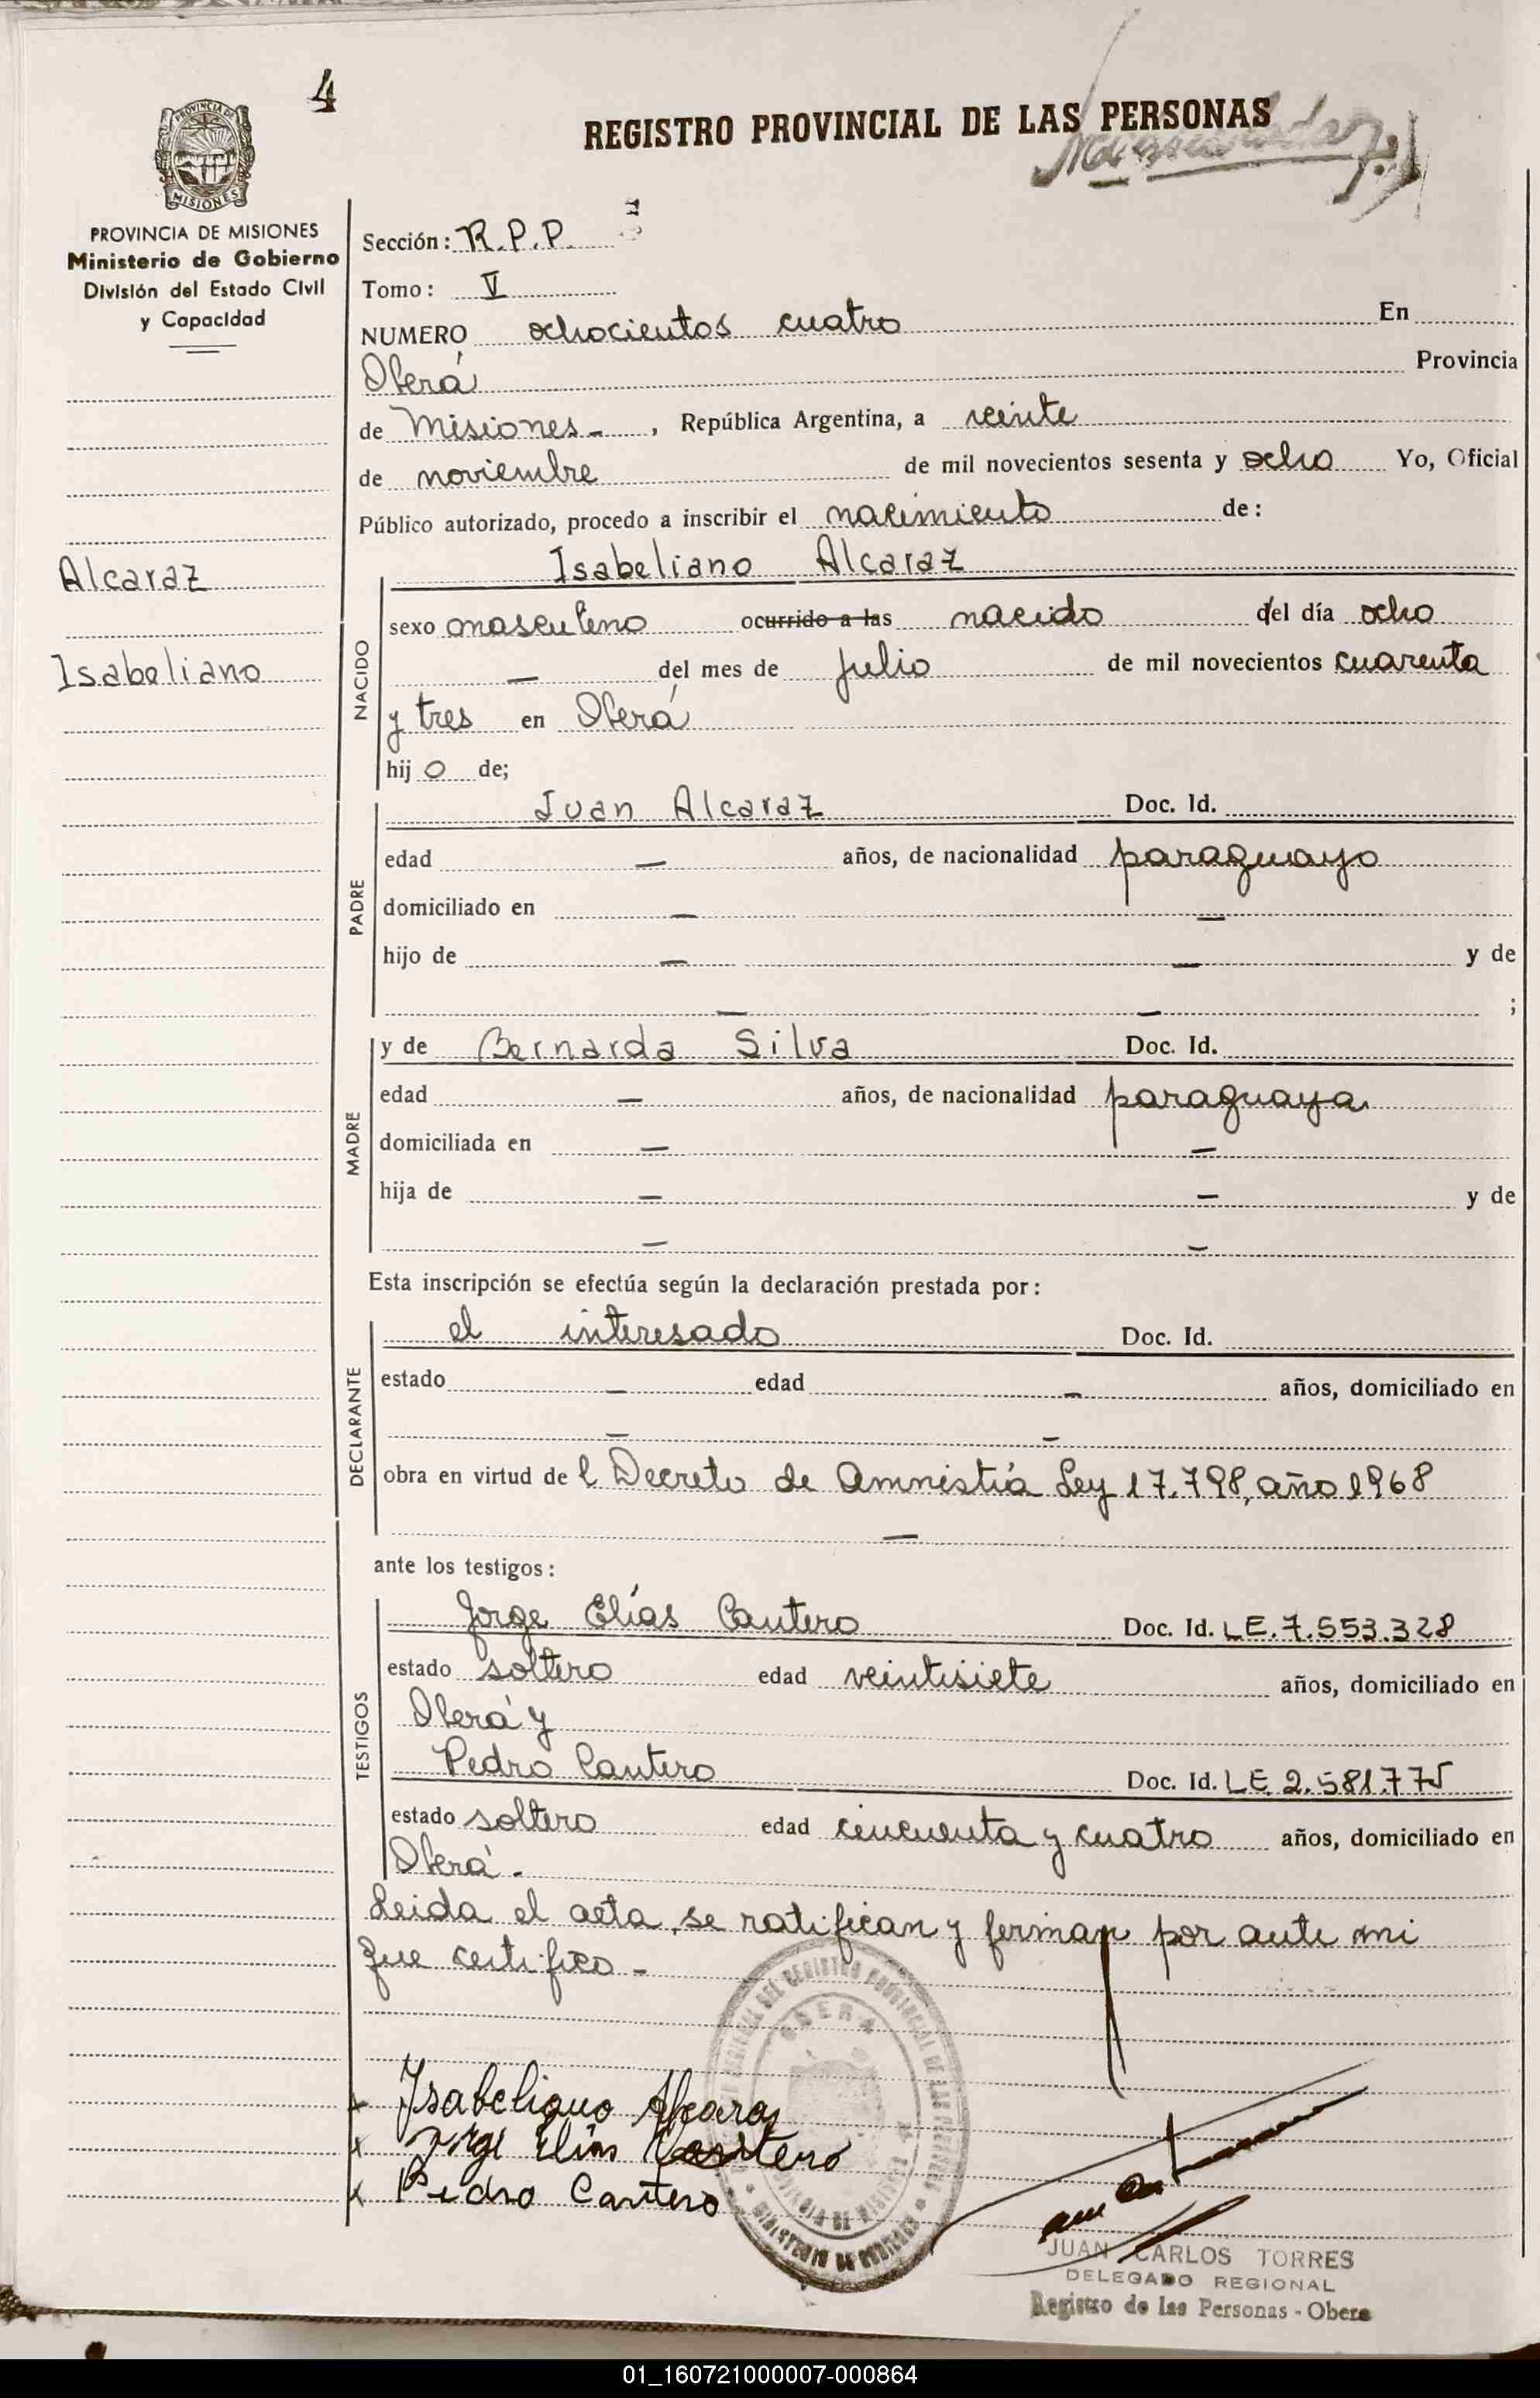 4
REGISTRO PROVINCIAL DE LAS PERSONAS
PROVINCIA DE
MISIONES
PROVINCIA DE MISIONES
Ministerio de Gobierno
División del Estado Civil
y Capacidad
Alcaraz
Isabeliano
Sección: R.P.P.
Tomo: V
NUMERO ochocientos cuatro En
Oberá Provincia
de Misiones - , República Argentina, a veinte
de noviembre de mil novecientos sesenta y ocho Yo, Oficial
Público autorizado, procedo a inscribir el nacimiento de:
Isabeliano Alcaraz
NACIDO
sexo masculino ocurrido a las nacido del día ocho
— del mes de julio de mil novecientos cuarenta
y tres en Oberá
hij o de;
PADRE
Juan Alcaraz Doc. Id.
edad — años, de nacionalidad paraguayo
domiciliado en — —
hijo de — — y de
— — ;
MADRE
y de Bernarda Silva Doc. Id.
edad — años, de nacionalidad paraguaya
domiciliada en — —
hija de — — y de
— —
Esta inscripción se efectúa según la declaración prestada por:
DECLARANTE
el interesado Doc. Id.
estado — edad — años, domiciliado en
— —
obra en virtud de l Decreto de Amnistía Ley 17.798, año 1968
—
ante los testigos:
TESTIGOS
Jorge Elías Cantero Doc. Id. LE. 7.553.328
estado soltero edad veintisiete años, domiciliado en
Oberá y
Pedro Cantero Doc. Id. LE 2.581.775
estado soltero edad cincuenta y cuatro años, domiciliado en
Oberá -
Leida el acta, se ratifican y firman por ante mi
que certifico -
x Isabeliano Alcaraz
x Jorge Elías Cantero
x Pedro Cantero
JUAN CARLOS TORRES
DELEGADO REGIONAL
Registro de las Personas - Obera
01_160721000007-000864